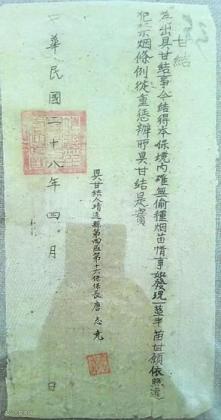 甘結
為出具甘結事今結得本保境內確無偷種烟苗情事如發現一莖半苗甘領依照違
犯禁烟條例從重懲辦所具甘結是實
具甘結人靖遠縣第四區第十六保保長唐志充
中華民國二十八年四月 日